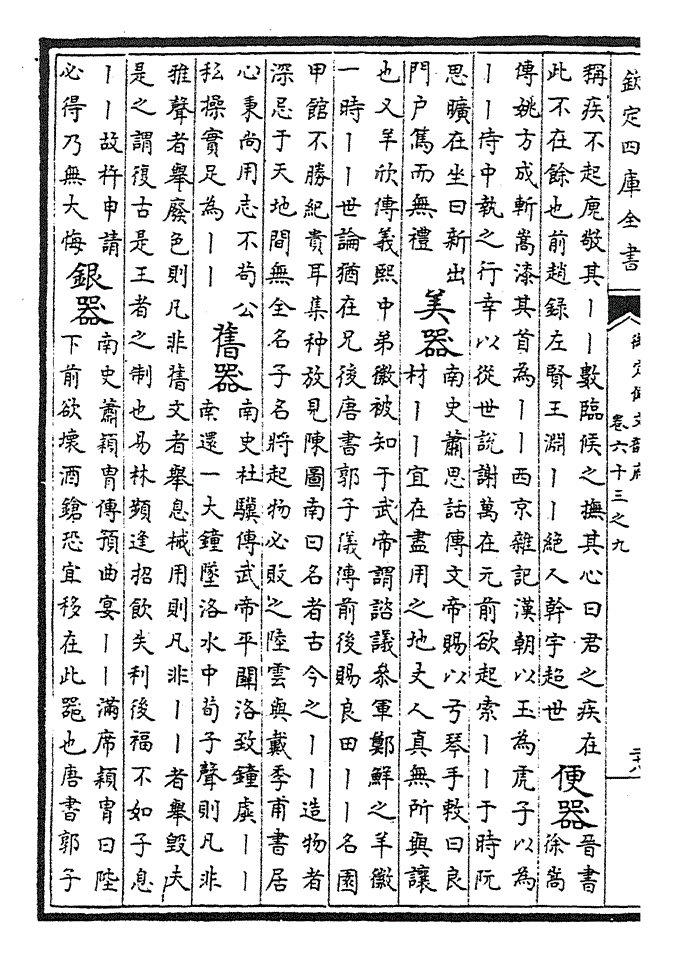 欽定四庫全書
御定佩文韻府
卷六十三之九
二十八
稱疾不起庾敬其丨丨數臨候之撫其心曰君之疾在
此不在餘也前趙録左賢王淵丨丨絶人幹宇超世
便器
晉書
徐嵩
傳姚方成斬嵩漆其首為丨丨西京雜記漢朝以玉為虎子以為
丨丨侍中執之行幸以從世說謝萬在元前欲起索丨丨于時阮
思曠在坐曰新出
門户篤而無禮
美器
南史蕭思話傳文帝賜以弓琴手敕曰良
材丨丨宜在盡用之地丈人真無所與讓
也又羊欣傳義熙中弟徽被知于武帝謂諮議叅軍鄭鮮之羊徽
一時丨丨世論猶在兄後唐書郭子儀傳前後賜良田丨丨名園
甲館不勝紀貴耳集种放見陳圖南曰名者古今之丨丨造物者
深忌于天地間無全名子名將起物必敗之陸雲與戴季甫書居
心秉尚用志不苟公
私操實足為丨丨
舊器
南史杜驥傳武帝平關洛致鐘虡丨丨
南還一大鐘墜洛水中荀子聲則凡非
雅聲者舉廢色則凡非舊文者舉息械用則凡非丨丨者舉毀夫
是之謂復古是王者之制也易林頻逢招飲失利後福不如子息
丨丨故杵申請
必得乃無大悔
銀器
南史蕭穎胄傳預曲宴丨丨滿席穎胄曰陛
下前欲壞酒鎗恐宜移在此器也唐書郭子